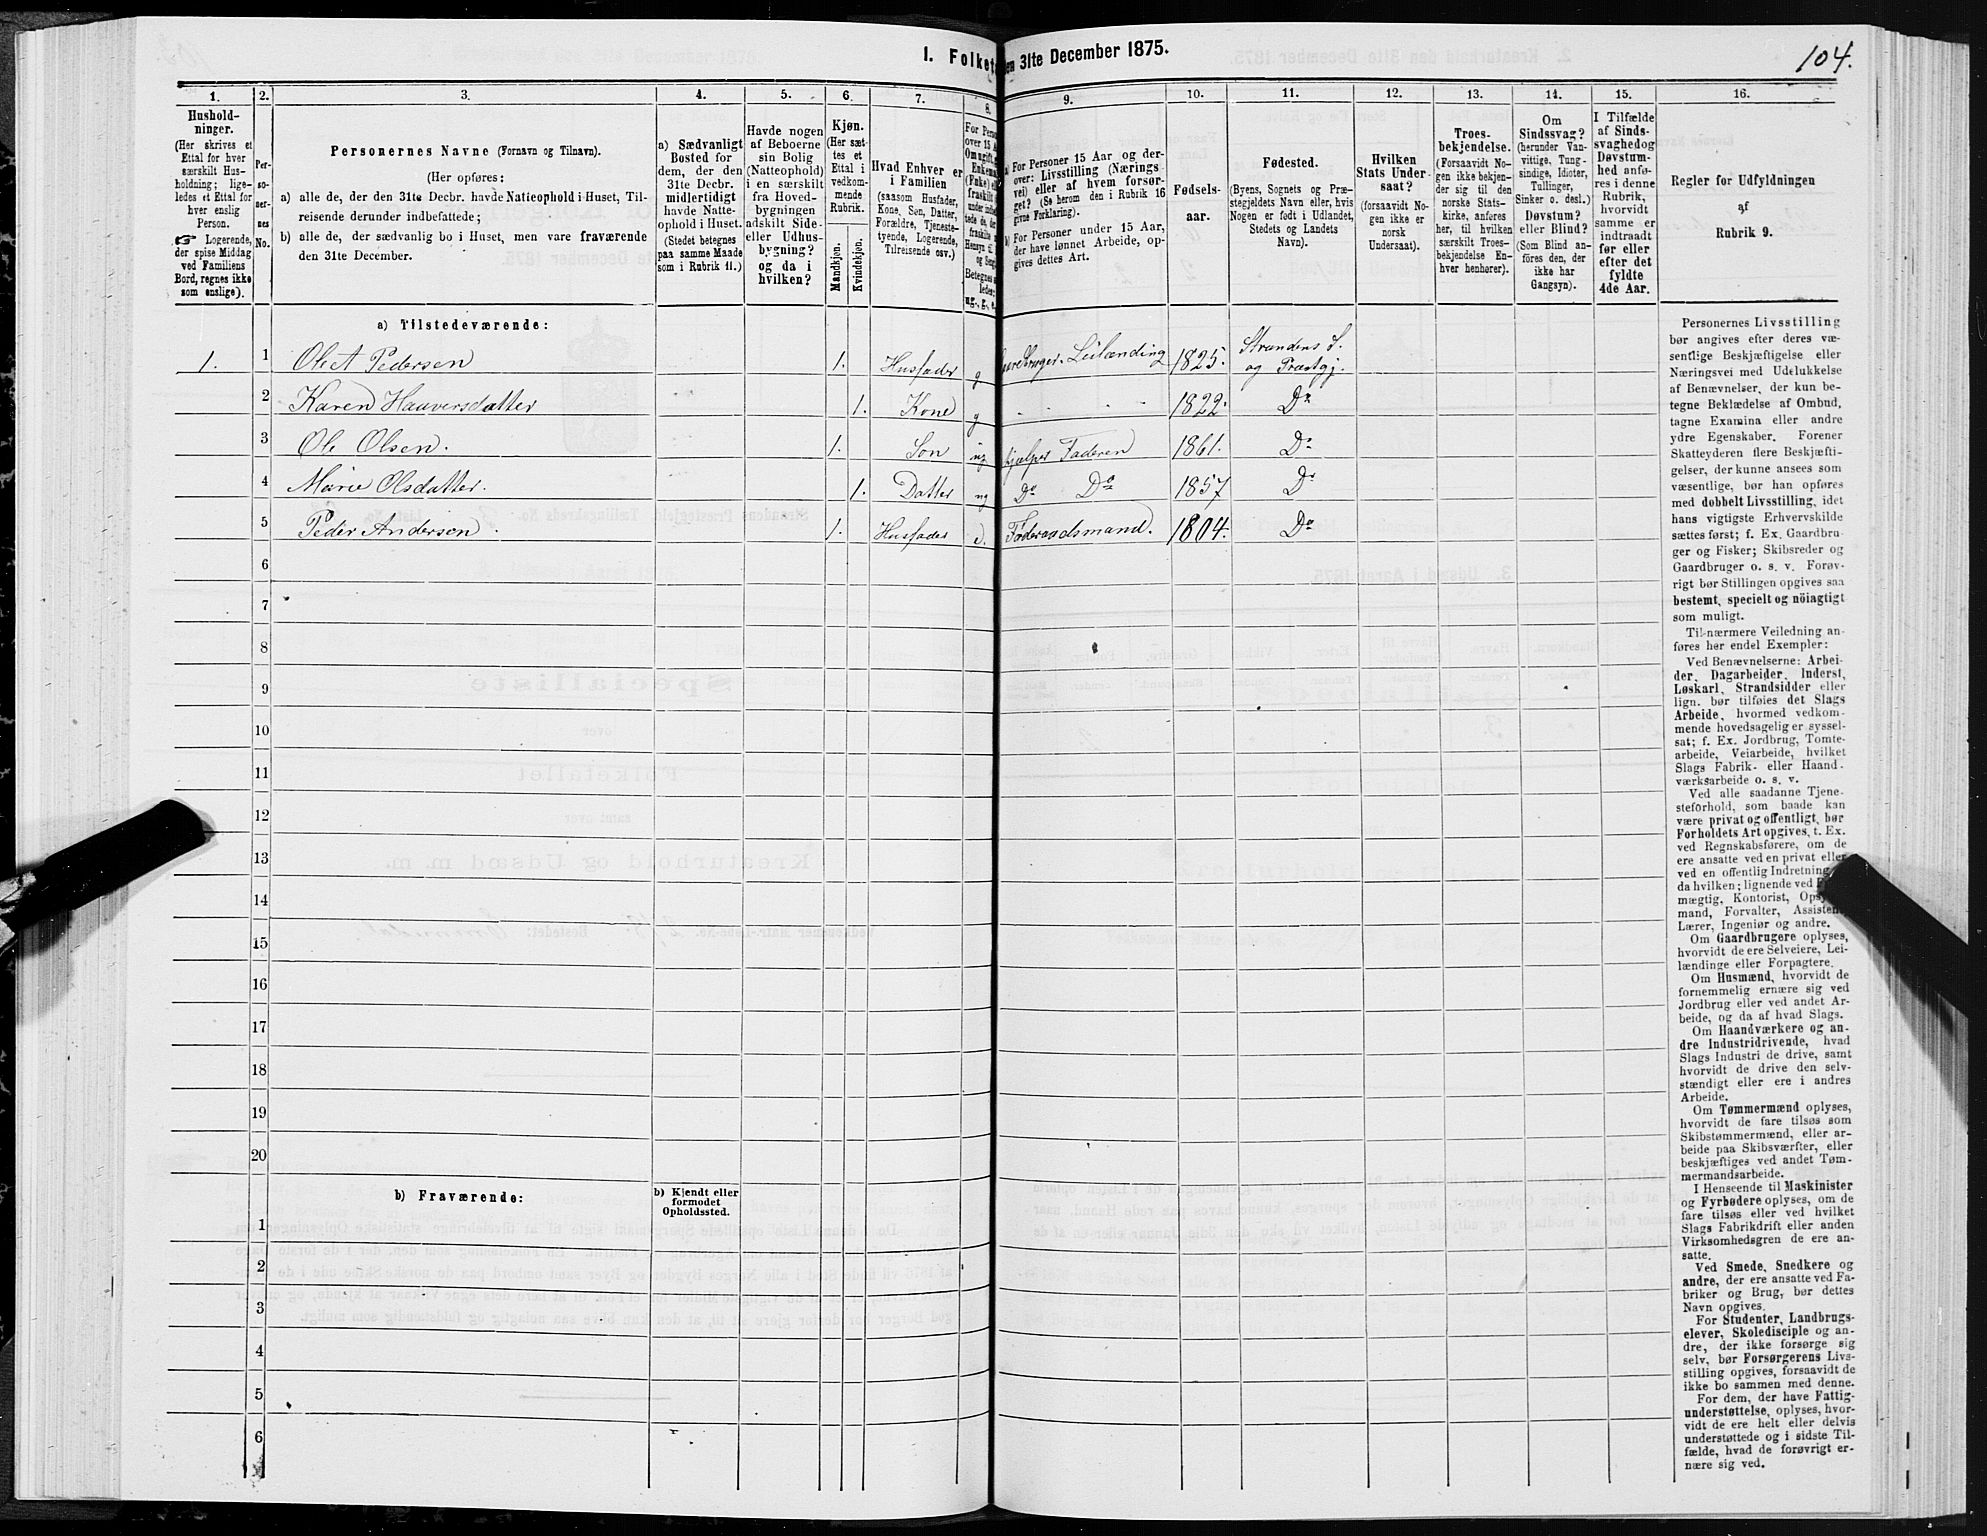 I. Folket
en 31te December 1875.
104.
1.
Hushold-
ninger.
(Her skrives et
Ettal for hver
særskilt Hus-
holdning; lige-
ledes et Ettal for
hver enslig
Person.
☞ Logerende,
der spise Middag
ved Familiens
Bord, regnes ikke
som enslige).
2.
Per-
so-
ner-
nes
No.
3.
Personernes Navne (Fornavn og Tilnavn).
(Her opføres:
a) alle de, der den 31te Decbr. havde Natteophold i Huset, Til-
reisende derunder indbefattede;
b) alle de, der sædvanlig bo i Huset, men vare fraværende
den 31te December.
4.
a) Sædvanligt
Bosted for
dem, der den
31te Decbr.
midlertidigt
havde Natte-
ophold i Huset.
(Stedet betegnes
paa samme Maade
som i Rubrik 11.)
5.
Havde nogen
af Beboerne
sin Bolig
(Natteophold)
i en særskilt
fra Hoved-
bygningen
adskilt Side-
eller Udhus-
bygning?
og da i
hvilken?
6.
Kjøn.
(Her sæt-
tes et
Ettal i
vedkom-
mende
Rubrik.
Mandkjøn.
Kvindekjøn.
7.
Hvad Enhver er
i Familien
(saasom Husfader,
Kone, Søn, Datter,
Forældre, Tjeneste-
tyende, Logerende,
Tilreisende osv.)
8.
For Perso
over 15 A
Om ugift, g
Enkema
(Enke) el
fraskilt
Betegnes
ledes:
ug., g., e.
9.
a) For Personer 15 Aar og der-
over: Livsstilling (Nærings-
vei) eller af hvem forsør-
get? (Se herom den i Rubrik 16
givne Forklaring).
b) For Personer under 15 Aar,
der have lønnet Arbeide, op-
gives dettes Art.
10.
Fødsels-
aar.
11.
Fødested.
(Byens, Sognets og Præ-
stegjeldets Navn eller, hvis
Nogen er født i Udlandet,
Stedets og Landets
Navn).
12.
Hvilken
Stats Under-
saat?
(forsaavidt No-
gen ikke er
norsk
Undersaat).
13.
Troes-
bekjendelse.
(Forsaavidt No-
gen ikke bekjen-
der sig til den
norske Stats-
kirke, anføres
her, til hvilken
særskilt Troes-
bekjendelse En-
hver henhører).
14.
Om
Sindssvag?
(herunder Van-
vittige, Tung-
sindige, Idioter,
Tullinger,
Sinker o. desl.)
Døvstum?
eller Blind?
(Som Blind an-
føres den, der
ikke har
Gangsyn).
15.
I Tilfælde
af Sinds-
svaghed og
Døvstum-
hed anfø-
res i denne
Rubrik,
hvorvidt
samme er
indtraadt
før eller
efter det
fyldte
4de Aar.
16.
Regler for Udfyldningen
af
Rubrik 9.
a) Tilstedeværende:
1. 1 Ole A Pedersen 1. Husfader g Leilænding 1825. Strandens S. og Præstgj.
2 Karen Haaversdatter 1. Kone g 1822. Do
3 Ole Olsen. 1. Søn ug hjælper Faderen 1861. Do
4 Marie Olsdatter. 1. Datter ug Do Do 1857 Do
5 Peder Andersen. 1. Husfader e. Føderaadsmand. 1804. Do
6
7
8
9
10
11
12
13
14
15
16
17
18
19
20
b) Fraværende:
b) Kjendt eller
formodet
Opholdssted.
1
2
3
4
5
6
Personernes Livsstilling
bør angives efter deres væ-
sentlige Beskjæftigelse eller
Næringsvei med Udelukkelse
af Benævnelser, der kun be-
tegne Beklædelse af Ombud,
tagne Examina eller andre
ydre Egenskaber. Forener
Skatteyderen flere Beskjæfti-
gelser, der kunne ansees som
væsentlige, bør han opføres
med dobbelt Livsstilling, idet
hans vigtigste Erhvervskilde
sættes først; f. Ex. Gaardbru-
ger og Fisker; Skibsreder og
Gaardbruger o. s. v. Forøv-
rigt bør Stillingen opgives saa
bestemt, specielt og nöiagtigt
som muligt.
Til nærmere Veiledning an-
føres her endel Exempler:
Ved Benævnelserne: Arbei-
der, Dagarbeider, Inderst,
Løskarl, Strandsidder eller
lign. bør tilføies det Slags
Arbeide, hvormed vedkom-
mende hovedsagelig er syssel-
sat; f. Ex. Jordbrug, Tomte-
arbeide, Veiarbeide, hvilket
Slags Fabrik- eller Haand-
værksarbeide o. s. v.
Ved alle saadanne Tjene-
steforhold, som baade kan
være privat og offentligt, bør
Forholdets Art opgives, t. Ex.
ved Regnskabsførere, om de
ere ansatte ved en privat eller
ved en offentlig Indretning
da hvilken; lignende ved F
mægtig, Kontorist, Opsy
mand, Forvalter, Assistent
Lærer, Ingeniør og andre.
Om Gaardbrugere oplyses,
hvorvidt de ere Selveiere, Lei-
lændinge eller Forpagtere.
Om Husmænd, hvorvidt de
fornemmelig ernære sig ved
Jordbrug eller ved andet Ar-
beide, og da af hvad Slags.
Om Haandværkere og an-
dre Industridrivende, hvad
Slags Industri de drive, samt
hvorvidt de drive den selv-
stændigt eller ere i andres
Arbeide.
Om Tømmermænd oplyses,
hvorvidt de fare tilsøs som
Skibstømmermænd, eller ar-
beide paa Skibsværfter, eller
beskjæftiges ved andet Tøm-
mermandsarbeide.
I Henseende til Maskinister
og Fyrbødere oplyses, om de
fare tilsøs eller ved hvilket
Slags Fabrikdrift eller anden
Virksomhedsgren de ere an-
satte.
Ved Smede, Snedkere og
andre, der ere ansatte ved Fa-
briker og Brug, bør dettes
Navn opgives.
For Studenter, Landbrugs-
elever, Skoledisciple og an-
dre, der ikke forsørge sig
selv, bør Forsørgerens Livs-
stilling opgives, forsaavidt de
ikke bo sammen med denne.
For dem, der have Fattig-
understøttelse, oplyses, hvor-
vidt de ere helt eller delvis
understøttede og i sidste Til-
fælde, hvad de forøvrigt er-
nære sig ved.